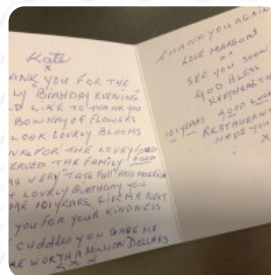 Kate
x
ANK YOU FOR THE
LY "BIRTHDAY EVENING"
D LIKE TO THANK YOU
BOWKAY OF FLOWERS
LOOK LOVELY BLOOMS
NKS FOR THE LOVELY FOOD
ERVED THE FAMILY
AS VERY "TATE FULL" AND
LOVELY BIRTHDAY YOU
ME 101 YEARS, LIKE THE REST
YOU FOR YOUR KINDNESS
CUDDLES YOU GAVE ME
RE WORTH A MILLION DOLLARS
x x x
THANK YOU AGAIN
LOVE MARGARET
x x
SEE YOU SOON
GOD BLESS
KEEP HEALTH
GOOD LUCK
101 YEARS
RESTAURANT
HOPE YOU
x